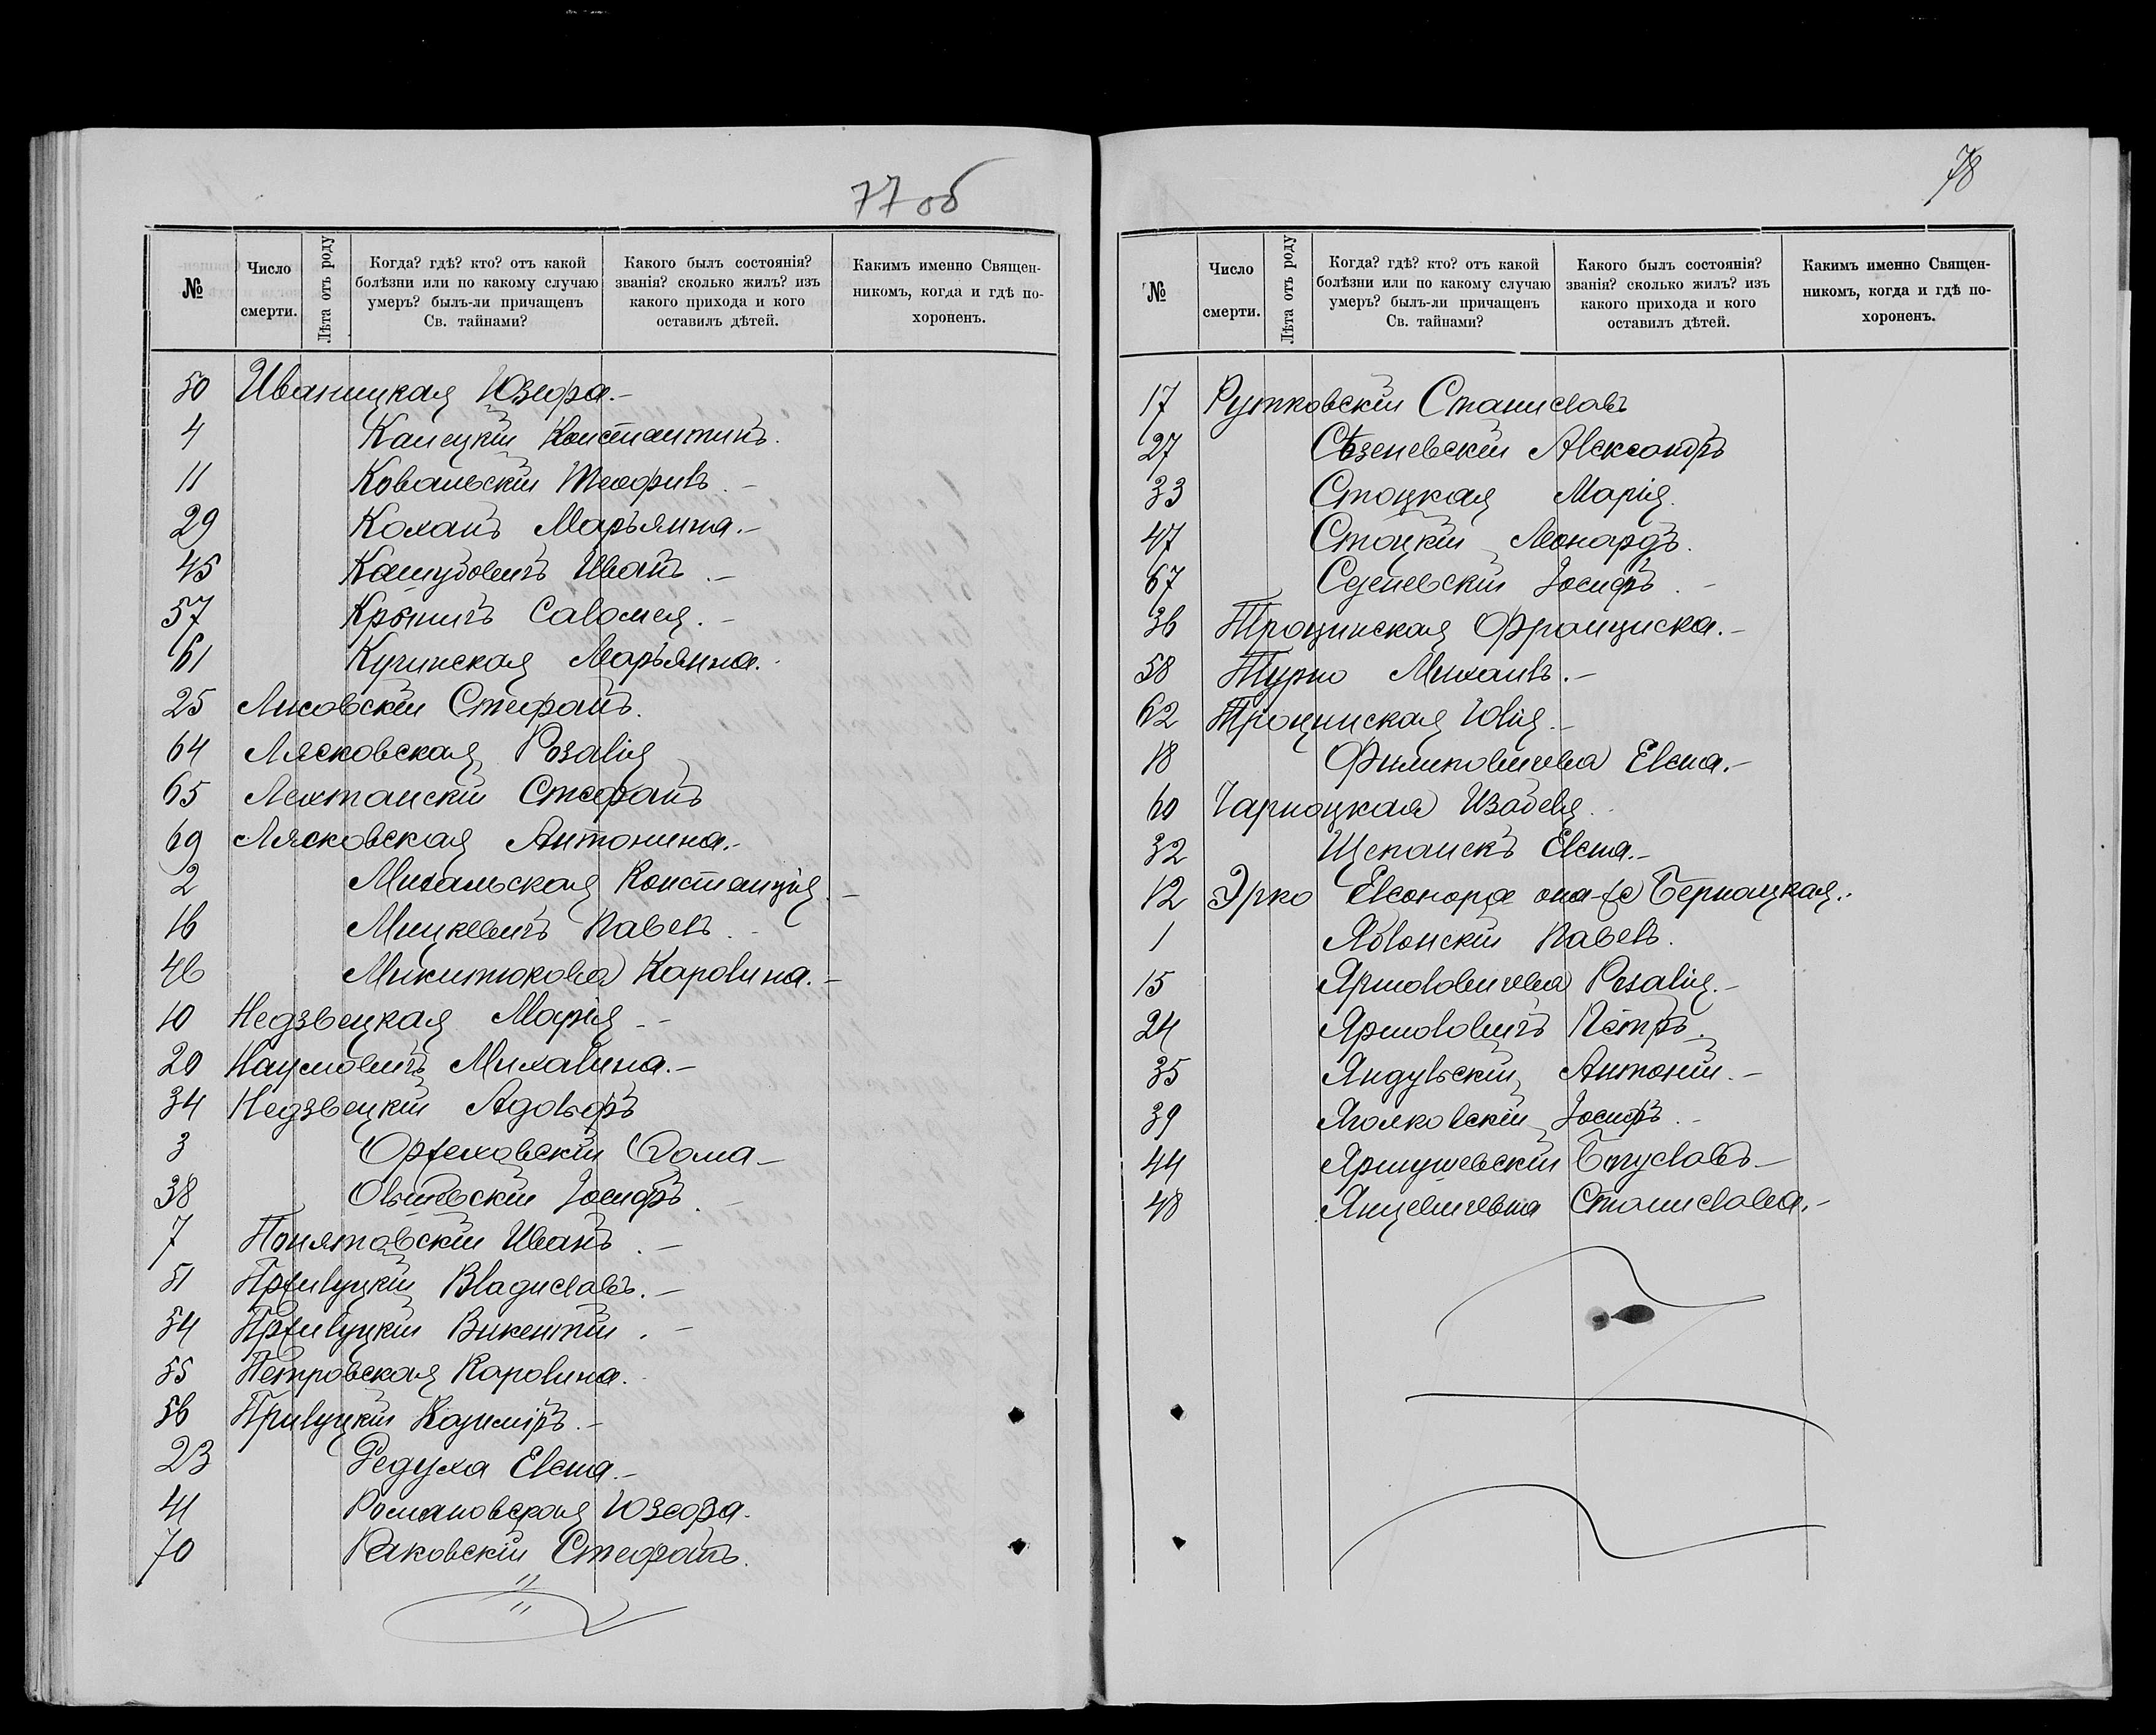 77 об
№
Число смерти.
Лѣта отъ роду
Когда? гдѣ? кто? отъ какой болѣзни или по какому случаю умеръ? былъ-ли причащенъ Св. тайнами?
Какого былъ состоянія? званія? сколько жилъ? изъ какого прихода и кого оставилъ дѣтей.
Какимъ именно Священникомъ, когда и гдѣ похороненъ.
50 Иваницкая Юзефа.-
4 Канецкій Константинъ.
11 Ковальскій Теофилъ.-
29 Коханъ Марьянна.-
45 Кашубовичъ Иванъ.-
57 Саломея.-
61 Кучинская Марьянна.
25 Лисовскій Стефанъ.
64 Лясковская Розалія
65 Лехтанскій Стефанъ
69 Лясковская Антонина.-
2 Михальская Констанція.-
16 Мицкевичъ Павелъ.-
46 Микитюкова Каролина.-
10 Недзвецкая Марія.-
20 Наумовичъ Михалина.-
34 Недзвецкій Адольфъ
3 Оржеховскій Ѳома-
38 Ольшевскій Іосифъ.-
7 Понятовскій Иванъ.-
51 Пржилуцкій Владиславъ.-
54 Пржилуцкій Викентій.-
55 Петровская Каролина.
56 Прилуцкій Казиміръ.-
23 Редуха Елена.-
41 Романовская Юзефа.
70 Раковскій Стефанъ.
78
№
Число смерти.
Лѣта отъ роду
Когда? гдѣ? кто? отъ какой болѣзни или по какому случаю умеръ? былъ-ли причащенъ Св. тайнами?
Какого былъ состоянія? званія? сколько жилъ? изъ какого прихода и кого оставилъ дѣтей.
Какимъ именно Священникомъ, когда и гдѣ похороненъ.
17 Рутковскій Станиславъ
27 Сѣзеневскій Александръ
33 Стоцкая Марія.
47 Стоцкій Леонардъ.
67 Іосифъ.-
36 Троцинская Франциска.-
58 Турно Михаилъ.-
62 Троцинская Юлія.-
18 Филиповичева Елена.-
60 Чарноцкая Изабеля.
32 Щепанскъ Елена.-
12 Эрко Елеонора она-же Бернацкая.
1 Яблонскій Павелъ.
15 Ярмоловичева Розалія.-
24 Ярмоловичъ Петръ.
35 Яндульскій Антоній.-
39 Іосифъ.-
44 Ярмушевскій Богуславъ-
48 Янцевичевна Станислава.-